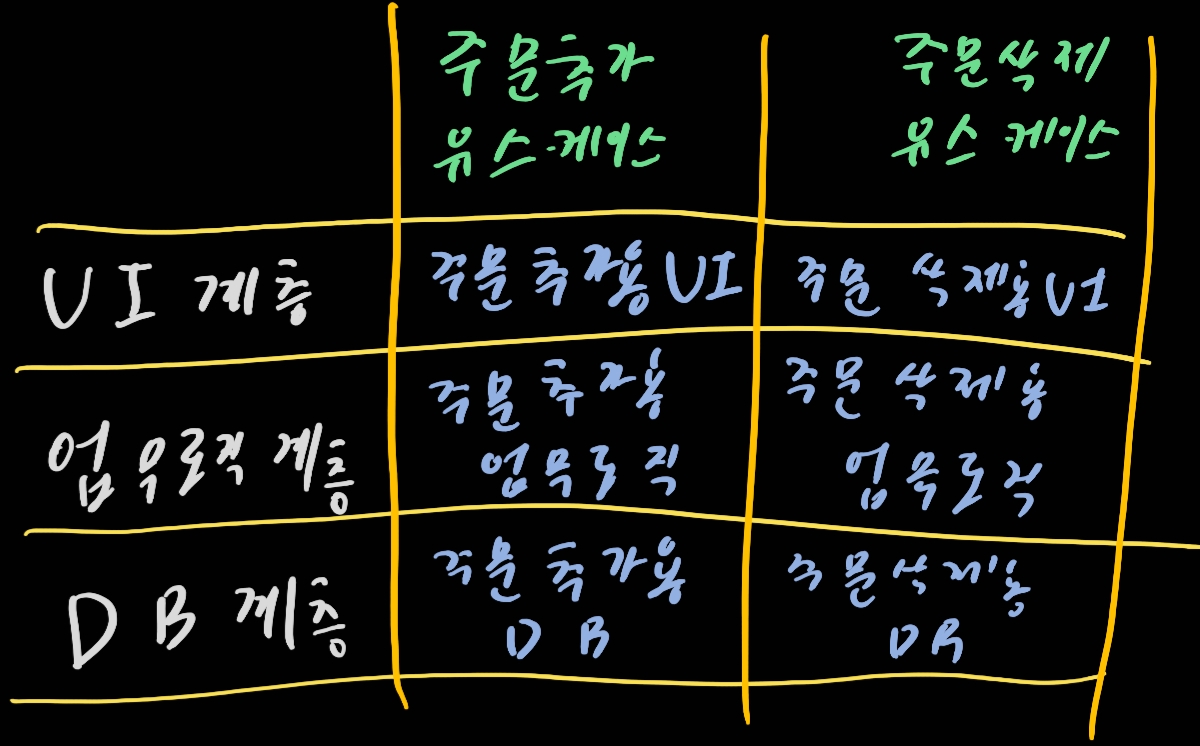 주문추가
유스케이스
주문삭제
유스케이스
UI 계층
주문 추가용 UI
주문 삭제용 UI
업무로직 계층
주문 추가용
업무로직
주문 삭제용
업무로직
DB 계층
주문 추가용
DB
주문삭제용
DB